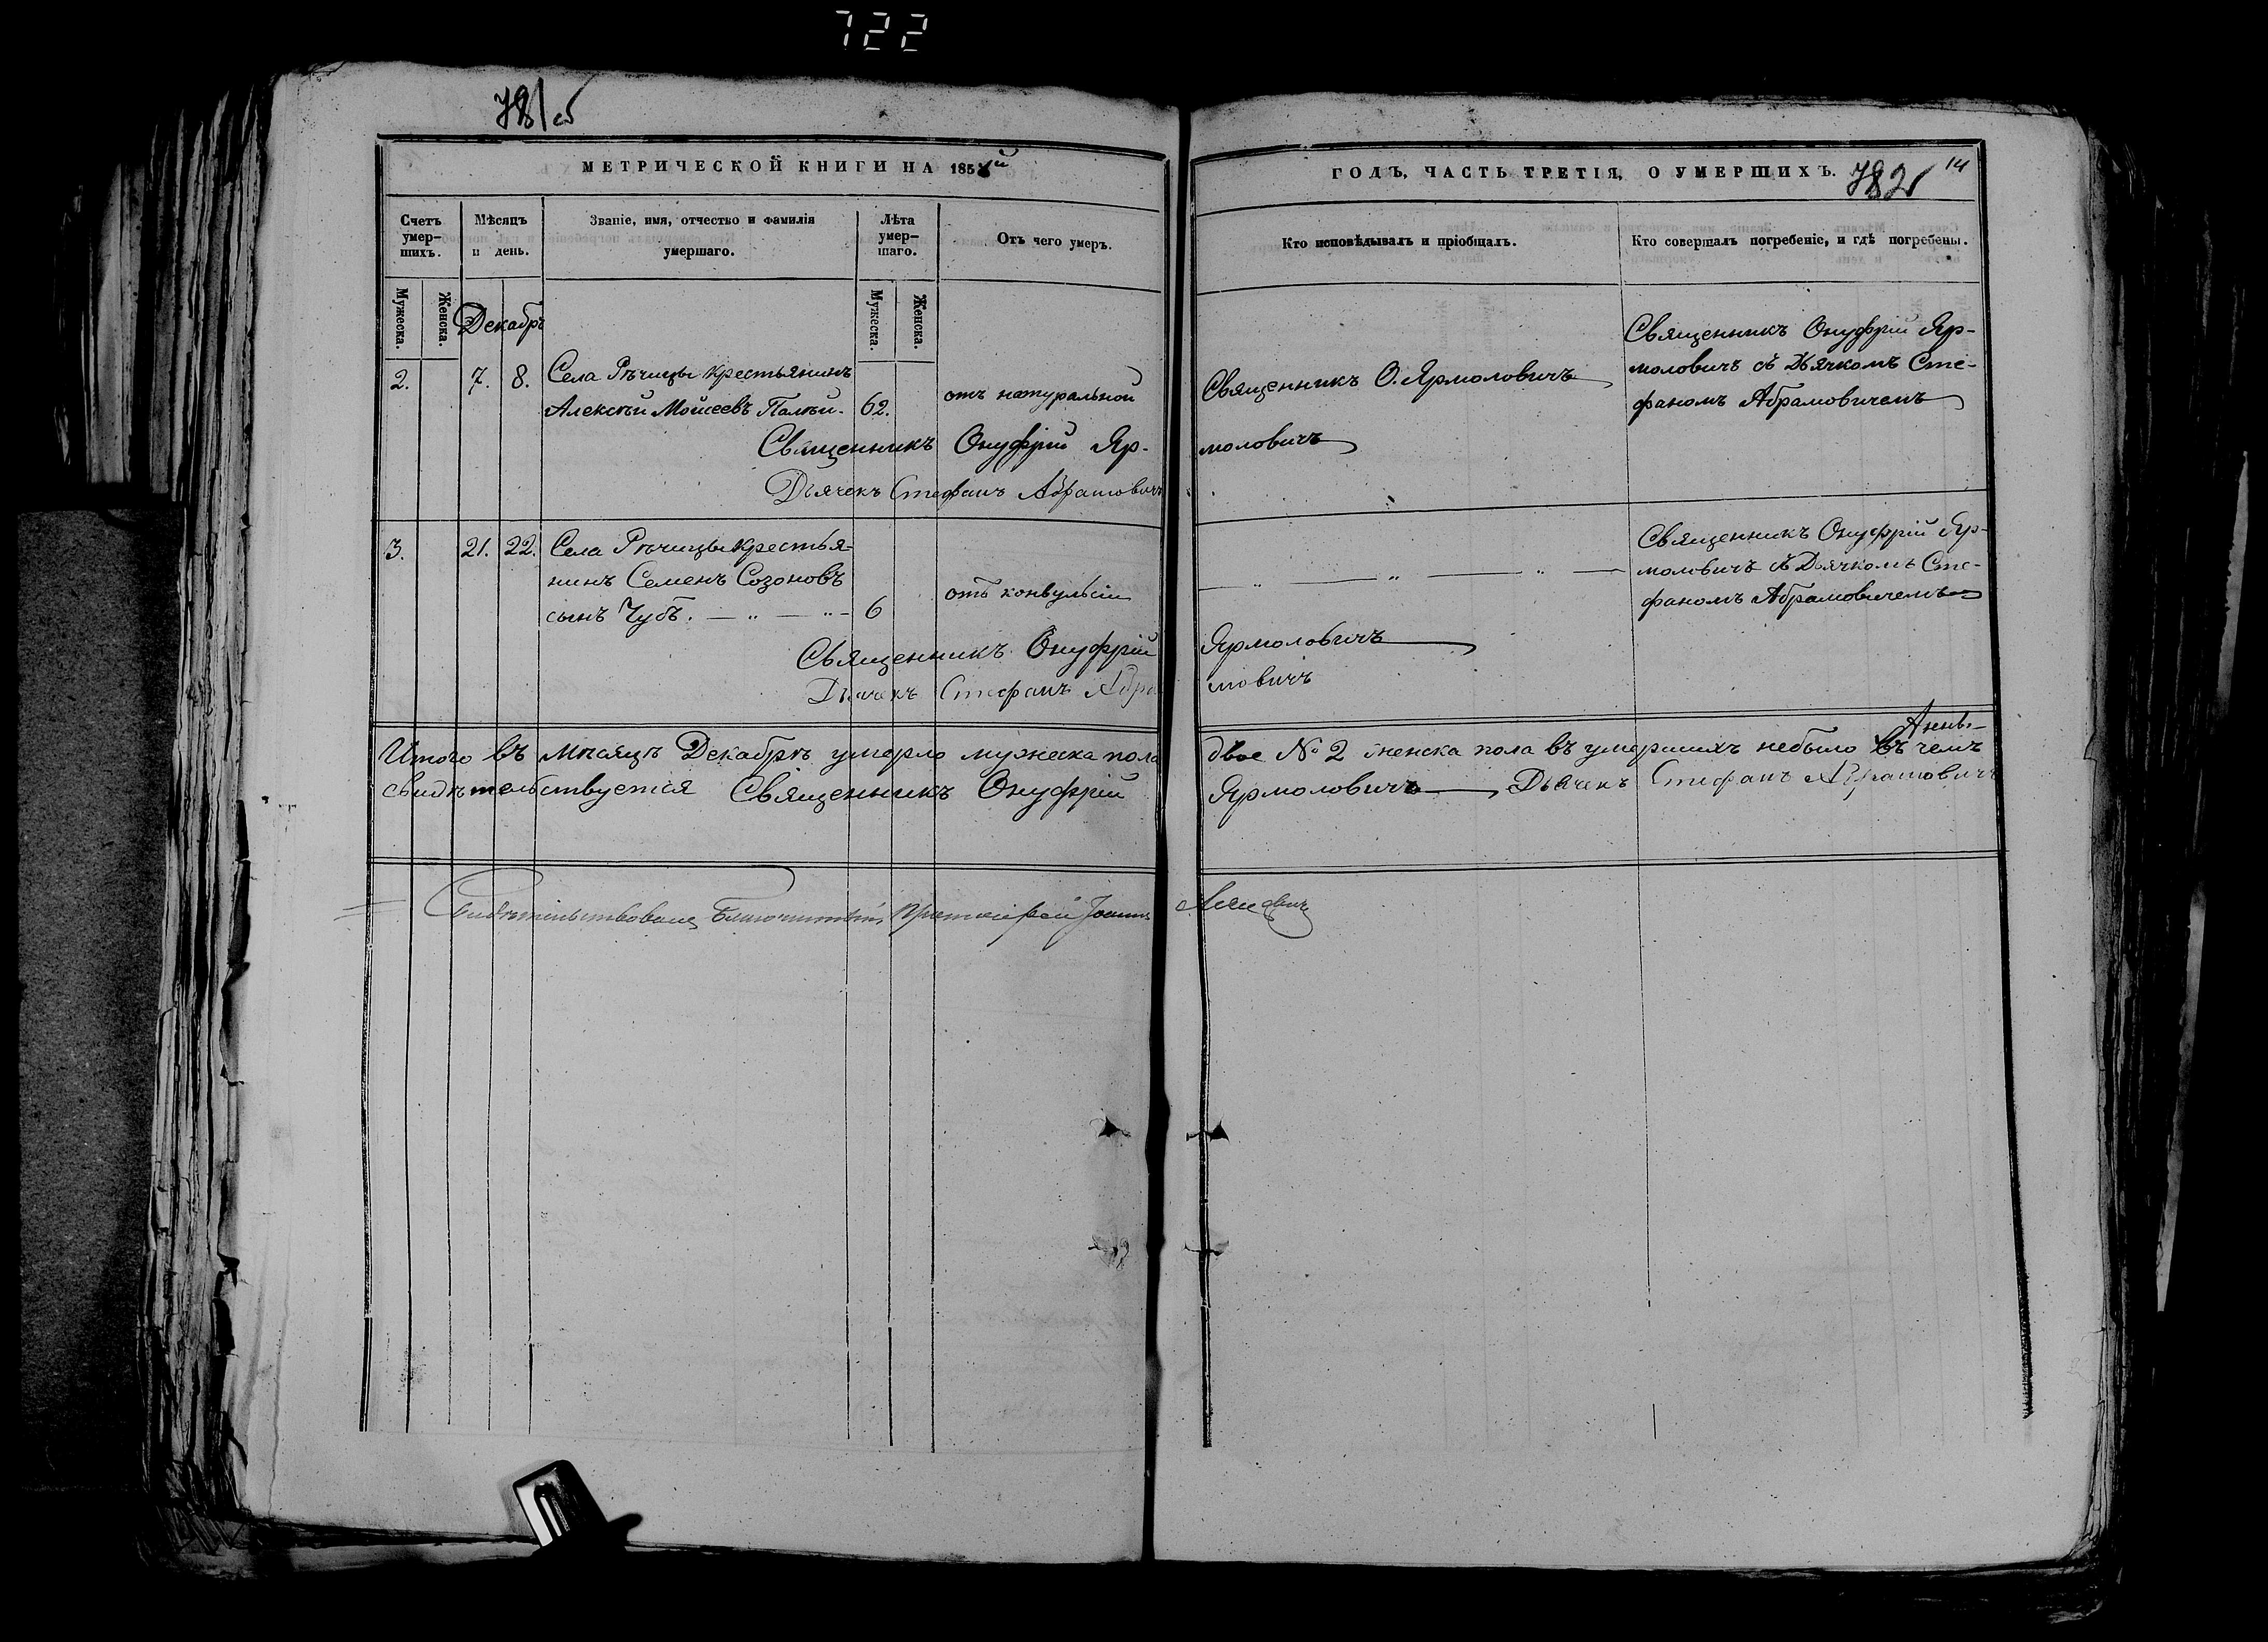 722
781 об
МЕТРИЧЕСКОЙ КНИГИ НА 185
ГОДЪ, ЧАСТЬ ТРЕТІЯ, О УМЕРШИХЪ.
782 14
Счетъ умер-шихъ.
Мѣсяцъ и день.
Званіе, имя, отчество и фамилія умершаго.
Лѣта умер-шаго.
Отъ чего умеръ.
Кто исповѣдывалъ и пріобщалъ.
Кто совершалъ погребеніе, и гдѣ погребены.
Мужеска.
Женска.
Декабрь
Мужеска.
Женска.
2. 7. 8. Села Рѣчицы крестьянинъ
Алексѣй Моисеевъ 62.
отъ натуральной
Священникъ О. Ярмоловичъ
Священникъ Онуфрій Яр-
моловичъ съ Дьячкомъ Сте-
фаномъ Абрамовичемъ
Священникъ Онуфрій Яр- моловичъ
Дьячекъ Стефанъ Абрамовичъ
3. 21. 22. Села Рѣчицы крестья-
нинъ Семенъ Созоновъ
сынъ Чубъ. — „ — „ — 6
отъ конвульсіи
— „ — „ — „ —
Священникъ Онуфрій Яр-
моловичъ съ Дьячкомъ Сте-
фаномъ Абрамовичемъ
Священникъ Онуфрій Ярмоловичъ
Дьячекъ Стефанъ Абра мовичъ
Итого въ мѣсяцѣ Декабрѣ умерло мужеска пола двое № 2 женска пола въ умершихъ небыло въ чемъ
свидѣтельствуется Священникъ Онуфрій Ярмоловичъ Дьячекъ Стефанъ Абрамовичъ
Благочинный Протоіерей Іоаннъ